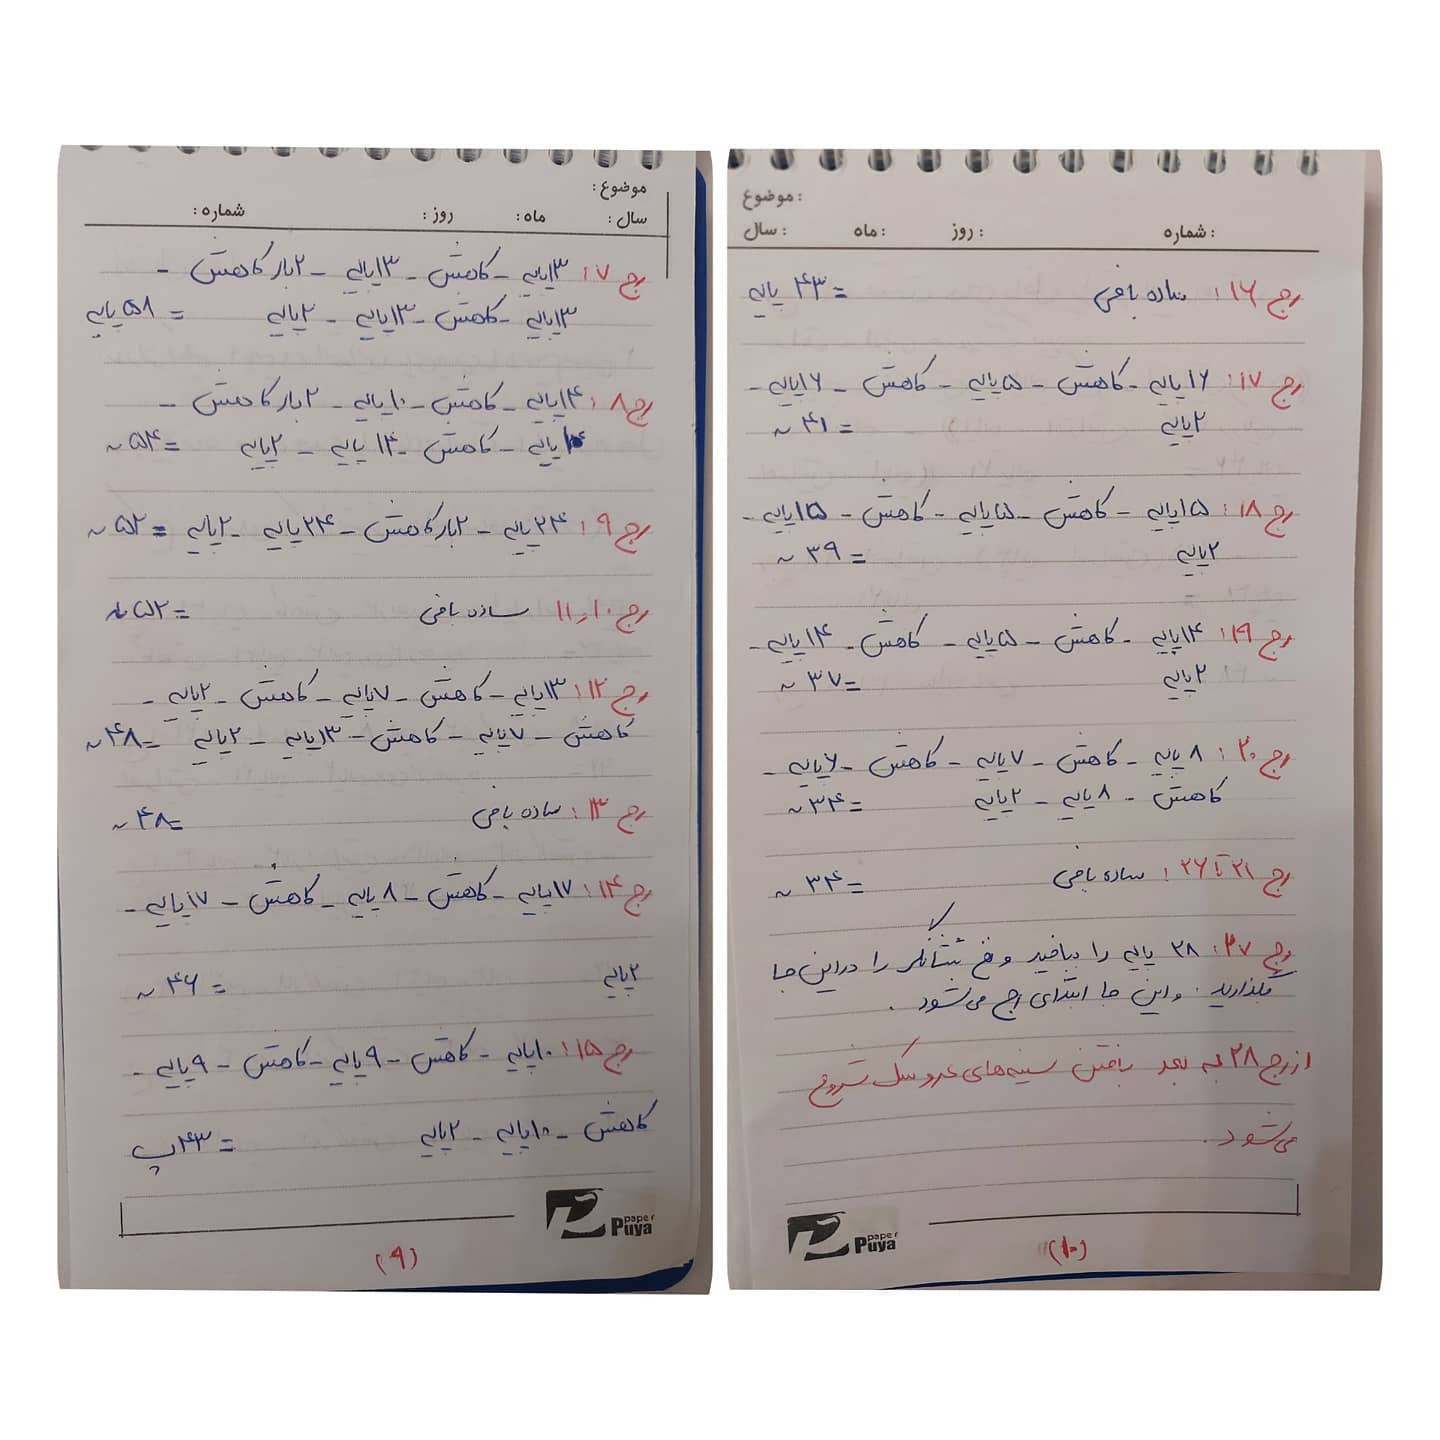 موضوع :
سال : ماه : روز : شماره :
رج ۷ : ۱۳پایه - کاهش - ۱۳پایه - ۲بار کاهش -
۱۳پایه - کاهش - ۱۳پایه - ۲پایه = ۵۸ پایه
رج ۸ : ۱۴پایه - کاهش - ۱۰پایه - ۲بار کاهش -
پایه - کاهش - ۱۴ پایه - ۲پایه = ۵۴ ~
رج ۹ : ۲۴ پایه - ۲بار کاهش - ۲۴ پایه - ۲پایه = ۵۲ ~
رج ۱۰ و ۱۱ ساده بافی = ۵۲ ~
رج ۱۲ : ۱۳پایه - کاهش - ۷پایه - کاهش - ۲پایه -
کاهش - ۷پایه - کاهش - ۱۳پایه - ۲پایه = ۴۸ ~
رج ۱۳ : ساده بافی = ۴۸ ~
رج ۱۴ : ۱۷پایه - کاهش - ۸ پایه - کاهش - ۱۷پایه -
۲پایه = ۴۶ ~
رج ۱۵ : ۱۰پایه - کاهش - ۹پایه - کاهش - ۹پایه -
کاهش - ۱۰پایه - ۲پایه = ۴۳پ
paper
Puya
(۹)
موضوع :
سال : ماه : روز : شماره :
رج ۱۶ : ساده بافی = ۴۳ پایه
رج ۱۷ : ۱۶ پایه - کاهش - ۵ پایه - کاهش - ۱۶پایه -
۲پایه = ۴۱ ~
رج ۱۸ : ۱۵پایه - کاهش - ۵پایه - کاهش - ۱۵پایه -
۲پایه = ۳۹ ~
رج ۱۹ : ۱۴پایه - کاهش - ۵پایه - کاهش - ۱۴پایه -
۲پایه = ۳۷ ~
رج ۲۰ : ۸ پایه - کاهش - ۷پایه - کاهش - ۶پایه -
کاهش - ۸پایه - ۲پایه = ۳۴ ~
رج ۲۱ تا ۲۶ : ساده بافی = ۳۴ ~
رج ۲۷ : ۲۸ پایه را ببافید و نخ نشانگر را در این جا
بگذارید . و این جا ابتدای رج می شود .
از رج ۲۸ به بعد بافتن سینه های عروسک شروع
می شود .
paper
Puya
(۱۰)